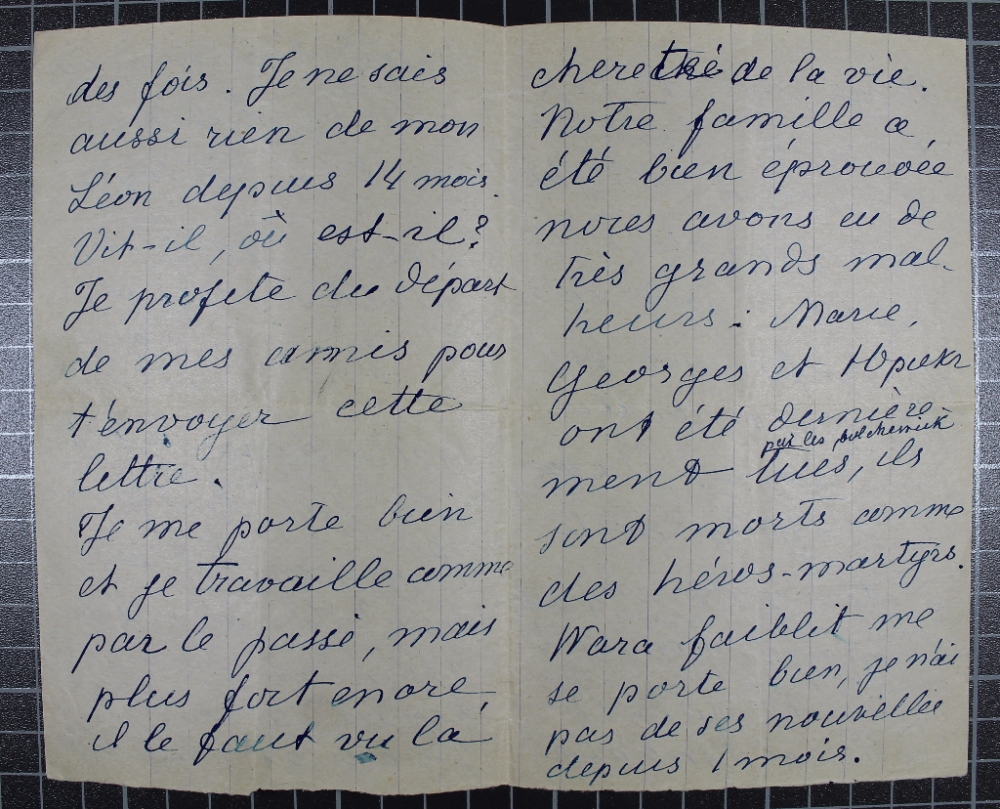 des fois. Je ne sais
aussi rien de mon
Léon depuis 14 mois.
Vit-il, où est-il?
Je profite du départ
de mes amis pour
t'envoyer cette
lettre.
Je me porte bien
et je travaille comme
par le passé, mais
plus fort encore,
il le faut vu la
chereté de la vie.
Notre famille a
été bien éprouvée
nous avons eu de
très grands mal-
heurs: Marie,
Georges et
ont été dernière-
par les bolchewick
ment tués, ils
sont morts comme
des héros-martyrs.
faiblit me
se porte bien, je n'ai
pas de ses nouvelles
depuis 1 mois.